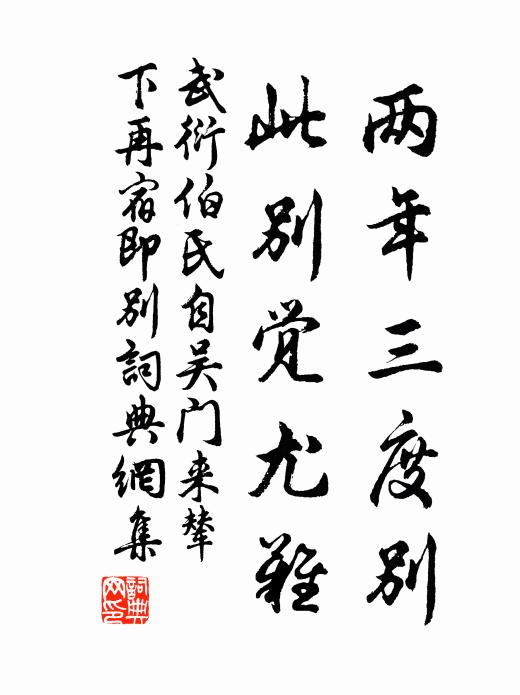 两年三度别
此别觉尤难
武衍伯氏自吴门来辇
下再宿即别詞典網集
詞典网印